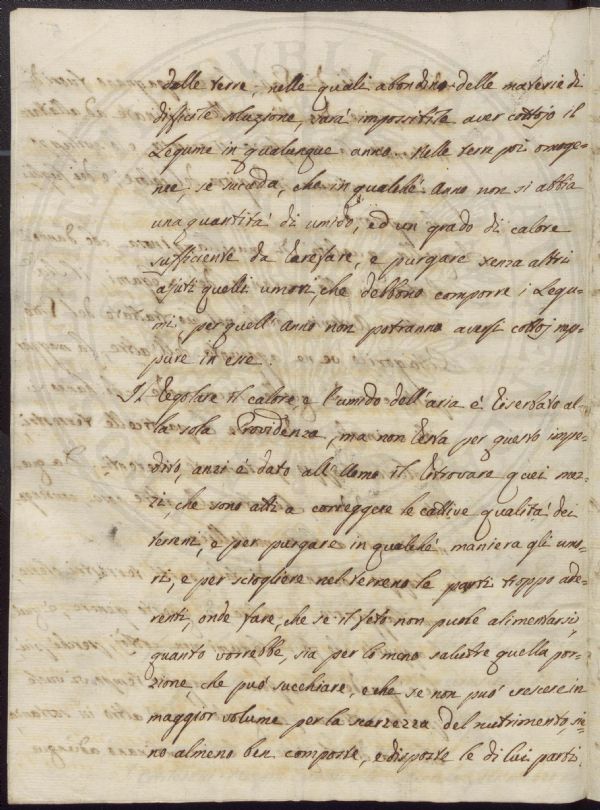 dalle terre, nelle quali abondino delle materie di
difficile soluzione, sarà impossibile aver cottojo il
Legume in qualunque anno. Nelle terre poi omoge-
nee, se accada, che in qualche anno non si abbia
una quantità di umido, ed un grado di calore
sufficiente da rarefare, e purgare senza altri
ajuti quelli umori, che debbono comporre i Legu-
mi, per quell'anno non potranno aversi cottoj nep-
pure in esse.
Il regolare il calore, e l'umido dell'aria è riserbato al-
la sola Providenza, ma non resta per questo impe-
dito, anzi è dato all'Uomo il ritrovare quei mez-
zi, che sono atti a correggere le cattive qualità dei
terreni, e per purgare in qualche maniera gli umo-
ri, e per sciogliere nel terreno le parti troppo ade-
renti, onde fare, che se il feto non puole alimentarsi,
quanto vorrebbe, sia per lo meno salubre quella por-
zione, che può succhiare, e che se non può crescere in
maggior volume per la scarzezza del nutrimento, sie-
no almeno ben composte, e disposte le di lui parti.